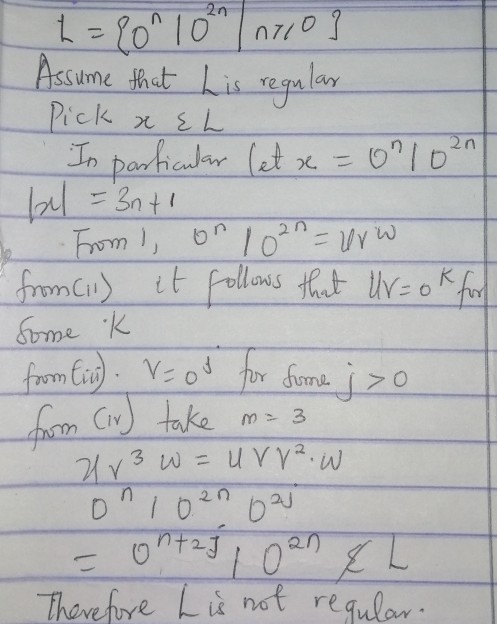 L = {0ⁿ 1 0²ⁿ | n ≥ 0}
Assume that L is regular
Pick x ε L
In particular let x = 0ⁿ 1 0²ⁿ
|x| = 3n + 1
From 1, 0ⁿ 1 0²ⁿ = uvw
from (ii) it follows that uv = 0ᴷ for
Some K
from (iii). v = 0ʲ for some j > 0
from (iv) take m = 3
uv³w = uvv².w
0ⁿ 1 0²ⁿ 0²ʲ
= 0ⁿ⁺²ʲ 1 0²ⁿ ∉ L
Therefore L is not regular.